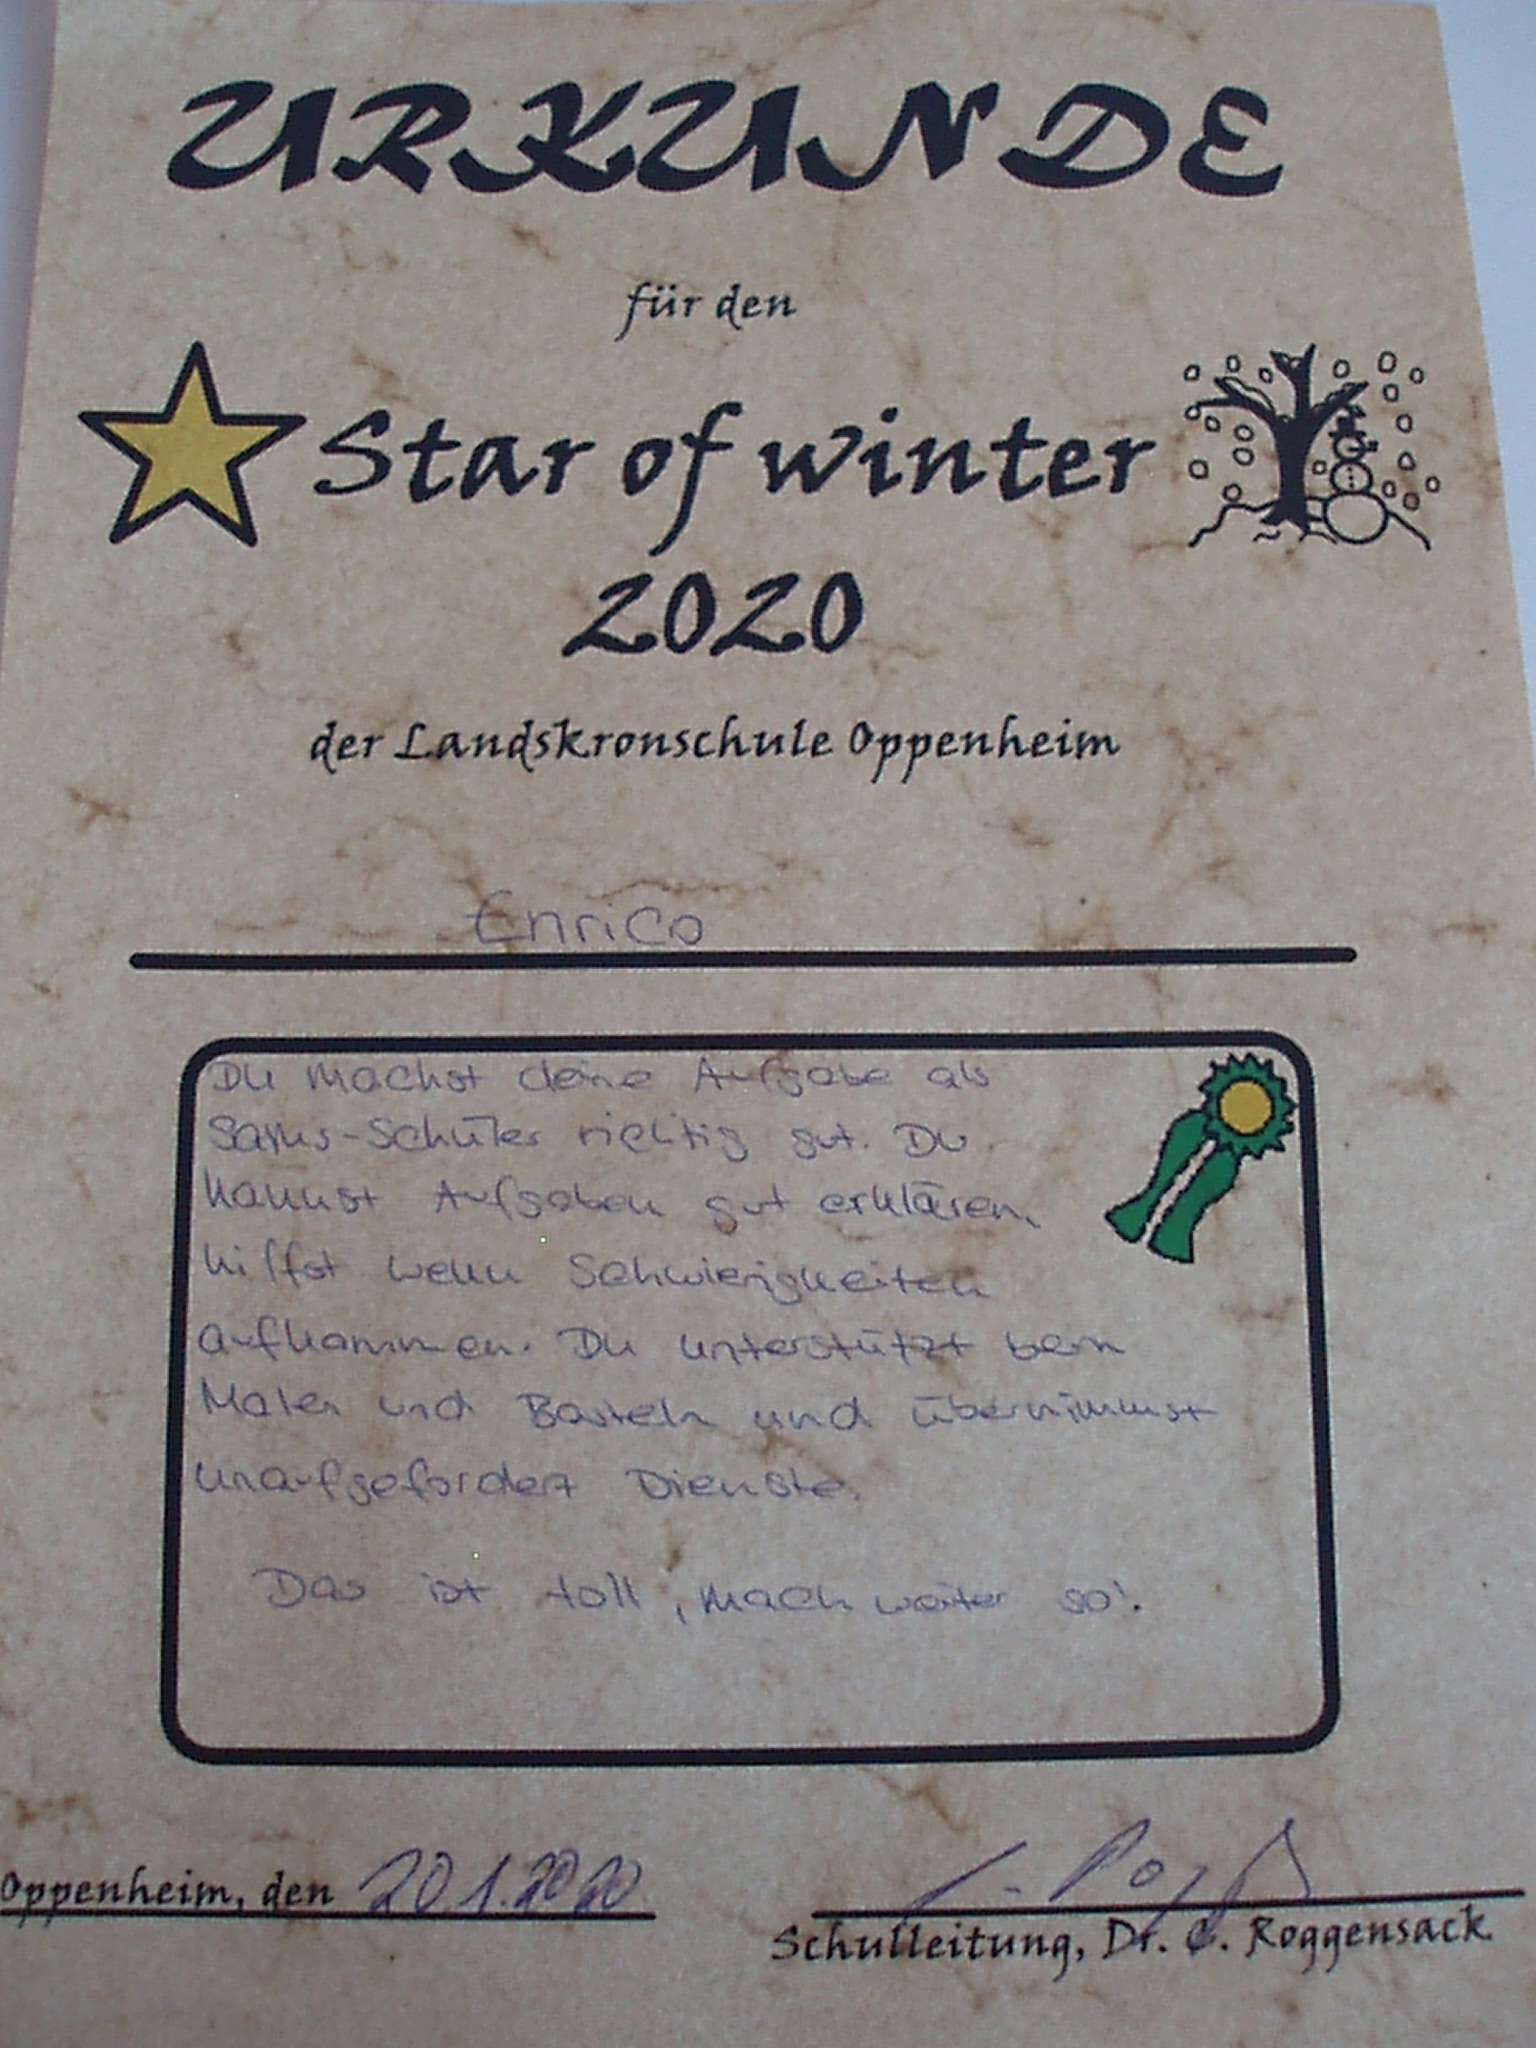 URKUNDE
für den
Star of winter
2020
der Landskronschule Oppenheim
Enrico
Du machst deine Aufgabe als
Samms-Schüler richtig gut. Du
kannst Aufgaben gut erklären,
hilfst wenn Schwierigkeiten
aufkommen. Du unterstützt beim
Malen und Basteln und übernimmst
unaufgefordert Dienste.
Das ist toll, mach weiter so!
Oppenheim, den 20.1.2020
Schulleitung, Dr. C. Roggensack